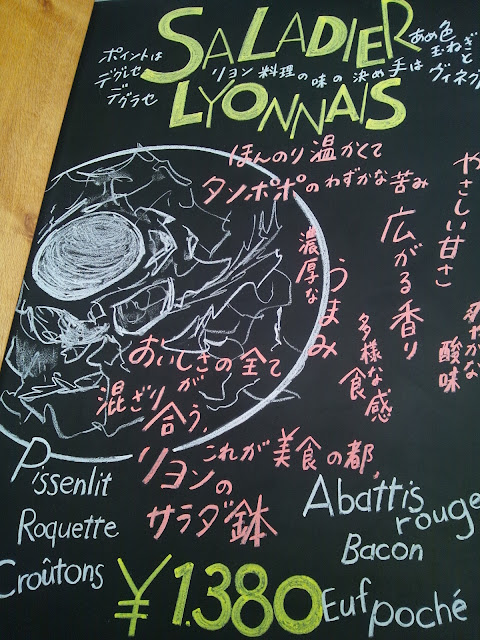 SALADIER
LYONNAIS
ポイントは
デグレセ
デグラセ
リヨン料理の味の決め手は
あめ色
玉ねぎ
と
ヴィネグ
ほんのり温かくて
タンポポのわずかな苦み
濃厚な
うまみ
広がる香り
多様な
食感
やさしい甘さ
やかな
酸味
おいしさの全て
が
混ざり合う、
これが美食の都、
リヨンの
サラダ鉢
Pissenlit
Roquette
Croûtons
Abattis
rouge
Bacon
Euf poché
¥1.380